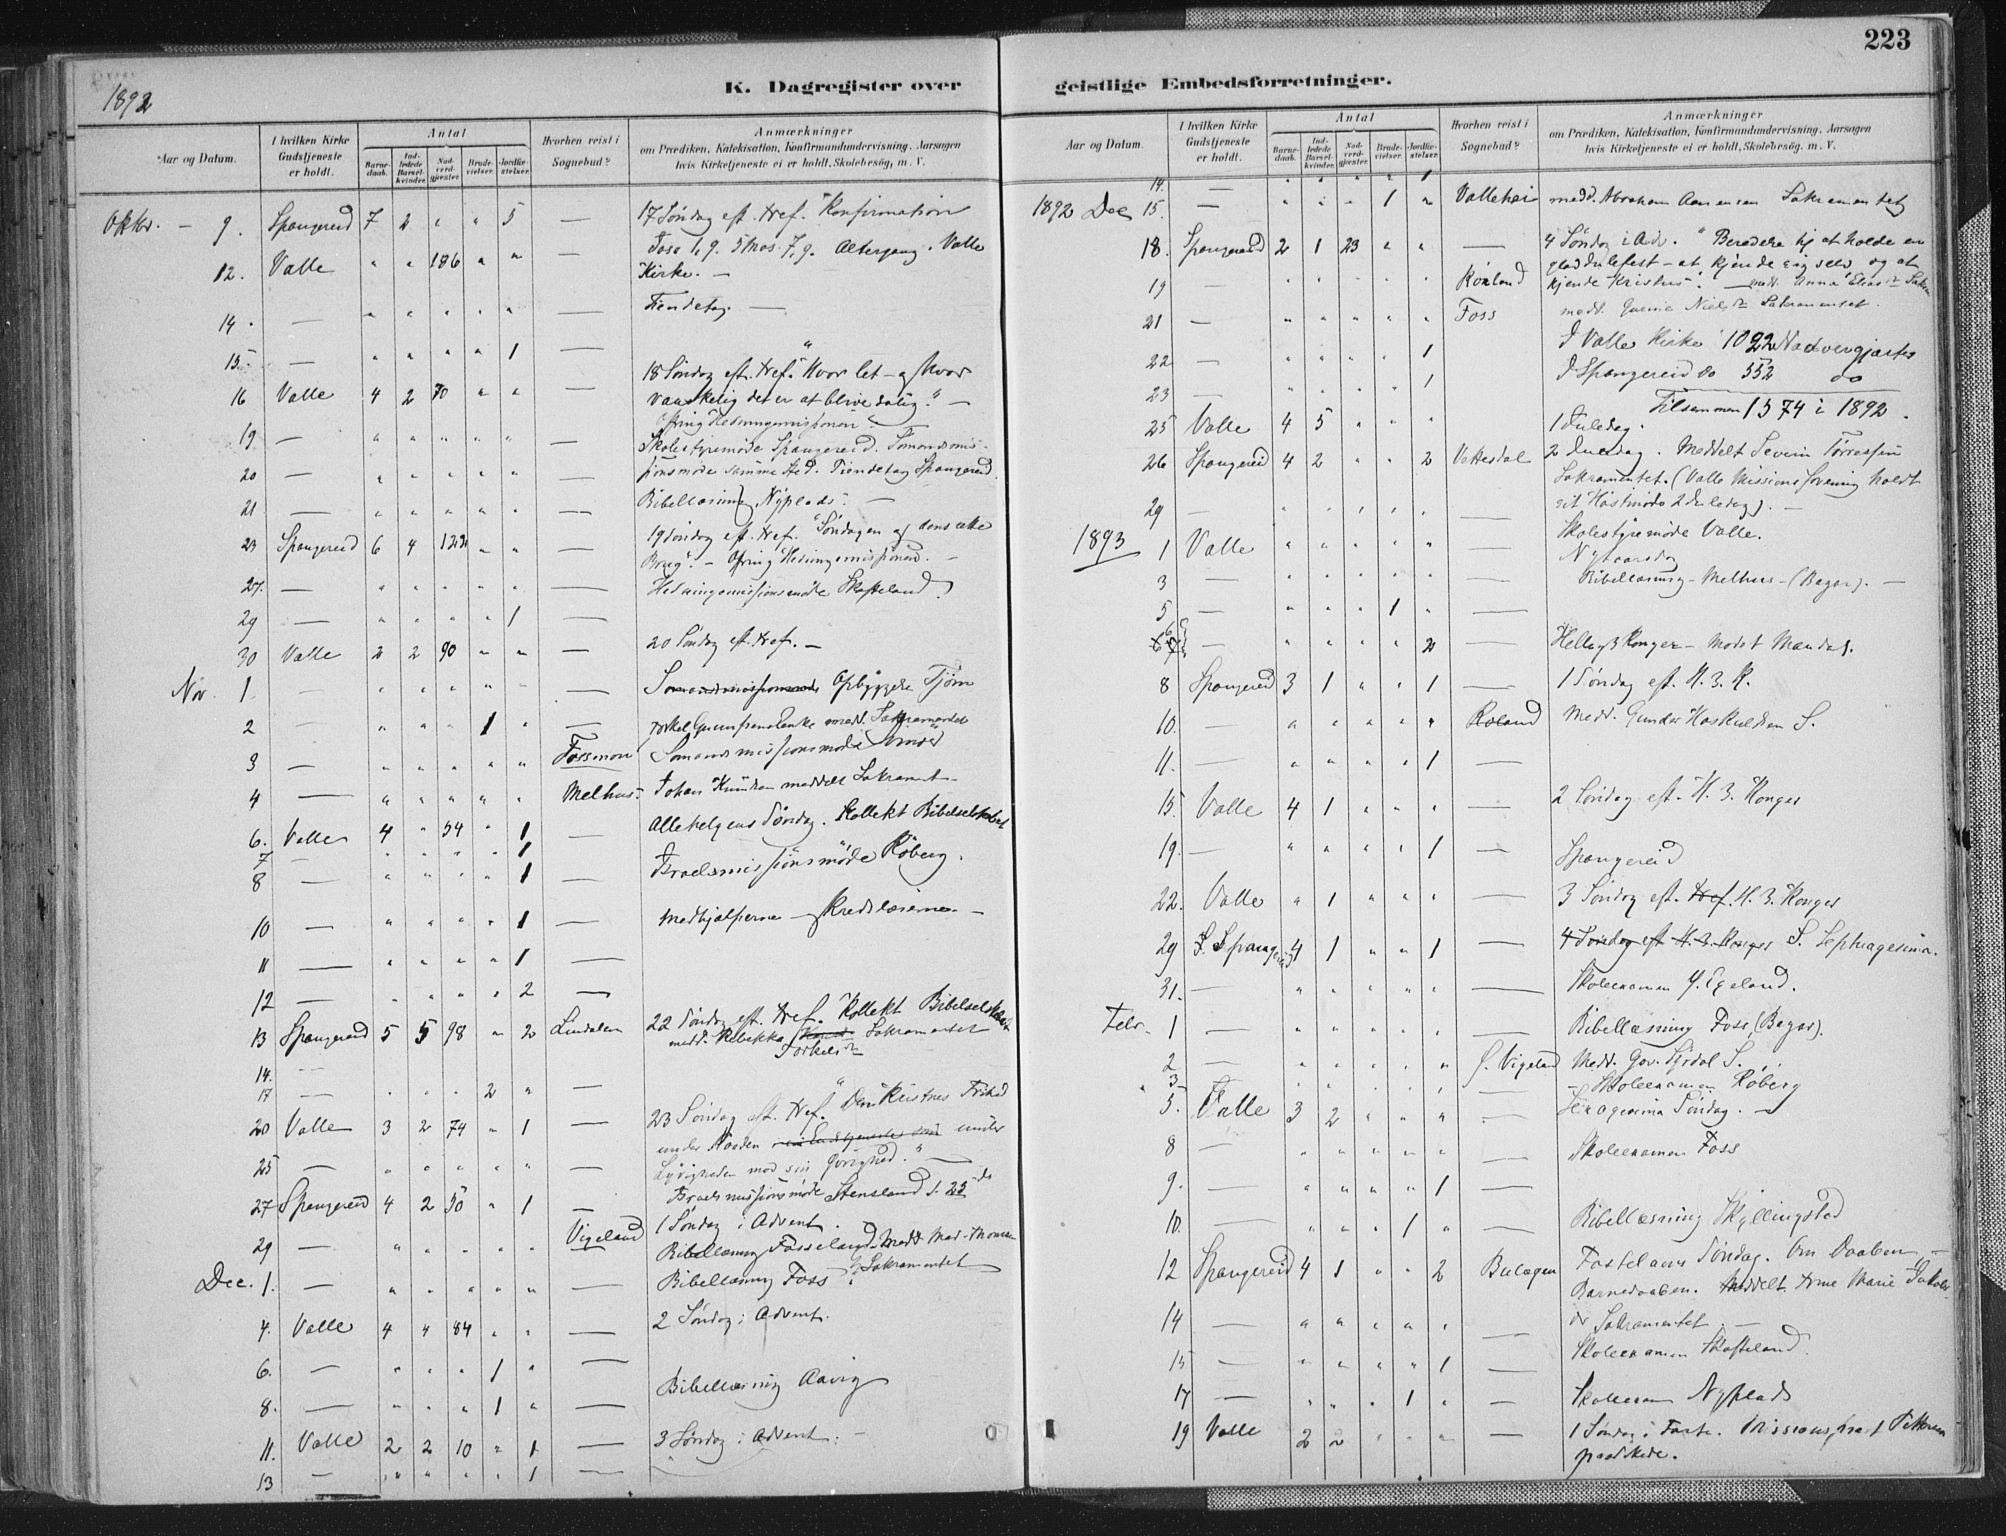 223
1892
K. Dagregister over geistlige Embedsforretninger.
Aar og Datum.
I hvilken Kirke Gudstjeneste er holdt.
Antal
Barnedaab.
Indledede Barselkvinder.
Nadverdgjester.
Brudevielser.
Jordfæstelser.
Hvorhen reist i Sognebud?
Anmærkninger
om Prædiken, Katekisation, Konfirmandundervisning, Aarsagen
hvis Kirketjeneste ei er holdt, Skolebesøg, m. V.
Oktbr. - 9. Spangereid 7 2 " " 5 — 17 Søndag eft. tref. Konfirmation
Josa 1,9. 5 Mos. 7,9. Altergang. Valle
12. Valle " " 186 " " — Kirke. —
14. — " " " " " Tiendetag. —
15. — " " " " 1 —
16 Valle 4 2 70 " " — 18 Søndag eft. tref. "Hvor let - og hvor
vanskelig det er at blive salig." —
Ofring Hedningemissionen
19. — " " " " " — Skolestyremøde Spangereid. Sømandsmis-
20 — " " " " " sionsmøde samme Sted. Tiendetag Spangereid.
21 — " " " " " — Bibellæsning Nyplads. —
23 Spangereid 6 4 122 " " — 19 Søndag eft. tref. "Søndagen og dens rette
Brug". - Ofring Hedningemissionen. -
27. — " " " " " — Hedningemissionsmøde Skofteland.
29 — " " " " 1 —
30 Valle 2 2 90 " " — 20 Søndag eft. tref. —
Nov. 1 — " " " " " — Opbyggelse Tjøm
2 — " " " 1 " — medd. Sakramentet
3 — " " " " " Fossmon Sømandsmissionsmøde
4 — " " " " " Melhus. Johan Knudsen meddelt Sakrament
6. Valle 4 " 54 " 1 — Allehelgens Søndag. Kollekt Bibelselskabet
7 — " " " " 1
8 — " " " " 1 — Israelsmissionsmøde Røberg.
10 — " " " " 1 — Medhjælperne og Kredslæserne. —
11 — " " " " 1 —
12 — " " " " 2 —
13 Spangereid 5 5 98 " 2 Lindalen 22 Søndag eft. tref. Kollekt Bibelselskabet
medd. Rebekka Torkelsdr Sakramentet
14. —
17 — " " " 2 " —
20 Valle 3 2 74 " 1 — 23 Søndag eft. tref. "Den Kristnes Frihed
under Naaden under
25 — " " " " " — Lydigheden mod sin Øvrighed." —
Israelsmissionsmøde Stensland d. 25de
27 Spangereid 4 2 50 " 1 — 1 Søndag i Advent.
29 — " " " " " Vigeland Bibellæsning Fosseland.
Sakramentet
Dec. 1. — " " " " " — Bibellæsning Foss.
4. Valle 4 " 84 " " — 2 Søndag i Advent.
6. — " " " 1 " —
8. — " " " 1 " — Bibellæsning Aavig
11. Valle 2 2 10 " 1 — 3 Søndag i Advent. —
13 — " " " " 1 —
Aar og Datum.
I hvilken Kirke Gudstjeneste er holdt.
Antal
Barnedaab.
Indledede Barselkvinder.
Nadverdgjester.
Brudevielser.
Jordfæstelser.
Hvorhen reist i Sognebud?
Anmærkninger
om Prædiken, Katekisation, Konfirmandundervisning, Aarsagen
hvis Kirketjeneste ei er holdt, Skolebesøg, m. V.
14. — " " " " 1
1892 Dec 15. — " " " 1 " Vallehei medd. Abraham Aanensen Sakramentet
18. Spangereid 2 1 23 " " — 4 Søndag i Adv. "Berede sig at holde en
glad Julefest - at kjende sig selv og at
19 — " " " " " Rønland kjende Kristus". — medd. Anna Eliasdr Sakr.
21 — " " " " " Foss medd. Gurine Nielsdr Sakramentet.
I Valle Kirke 1022 Nadvergjæster
22 — " " " " 1
I Spangereid do 552 do
23 — " " " " 1
Tilsammen 1574 i 1892.
25 Valle 4 5 " " " 1 Juledag.
26 Spangereid 4 2 " " 2 Vattesdal 2 Juledag. Meddelt Severin Tørressen
Sakramentet. (Valle Missionsforening holdt
29 — " " " " " — sit Høstmøde 2 Juledag). —
Skolestyremøde Valle.
1893 1 Valle " " " " " — Nytaarsdag
3 — " " " " " — Bibellæsning - Melhus - (Beyer). —
5 — " " " 1 " —
6 — " " " " 2 — Hellig 3 Konger - Modst Mandal.
8 Spangereid 3 1 " " 1 — 1 Søndag eft. H. 3. K.
10. — " " " " " Roland Medd. Gunder Haskuldsen S.
11. — " " " " 1 —
15. Valle 4 1 " " " — 2 Søndag eft. H. 3. Konger
19. — " " " " 1 — Spangereid
22. Valle " 1 " " " — 3 Søndag eft. tref. H. 3. Konger
29 S. Spangereid 4 1 " " 1 — 4 Søndag eft. H. 3. Konger S. Septuagesima.
31. — " " " " " — Skoleexamen Y. Egeland.
Febr. 1 — " " " " " — Bibellæsning Foss (Beyer).
2 — " " " " " S. Vigeland Medd. S.
3 — " " " " " — Skoleexamen Røberg
5. Valle 3 2 " " " — Sexagesima Søndag. —
8 — " " " " " — Skoleexamen Foss
9. — " " " " 1 —
10. — " " " 1 " — Bibellæsning Skyllingstad
12 Spangereid 4 1 " " 2 Bulægen Fastelavns Søndag. Om Daaben —
Barnedaaben. Meddelt Arne Marie Jakobs-
14 — " " " " " — dr Sakramentet. —
15 — " " " " 1 — Skoleexamen Skofteland.
17 — " " " 1 " — Skoleexam Nyplads
19 Valle 2 2 " " " — 1 Søndag i Faste. Missionsprest
prædikede.